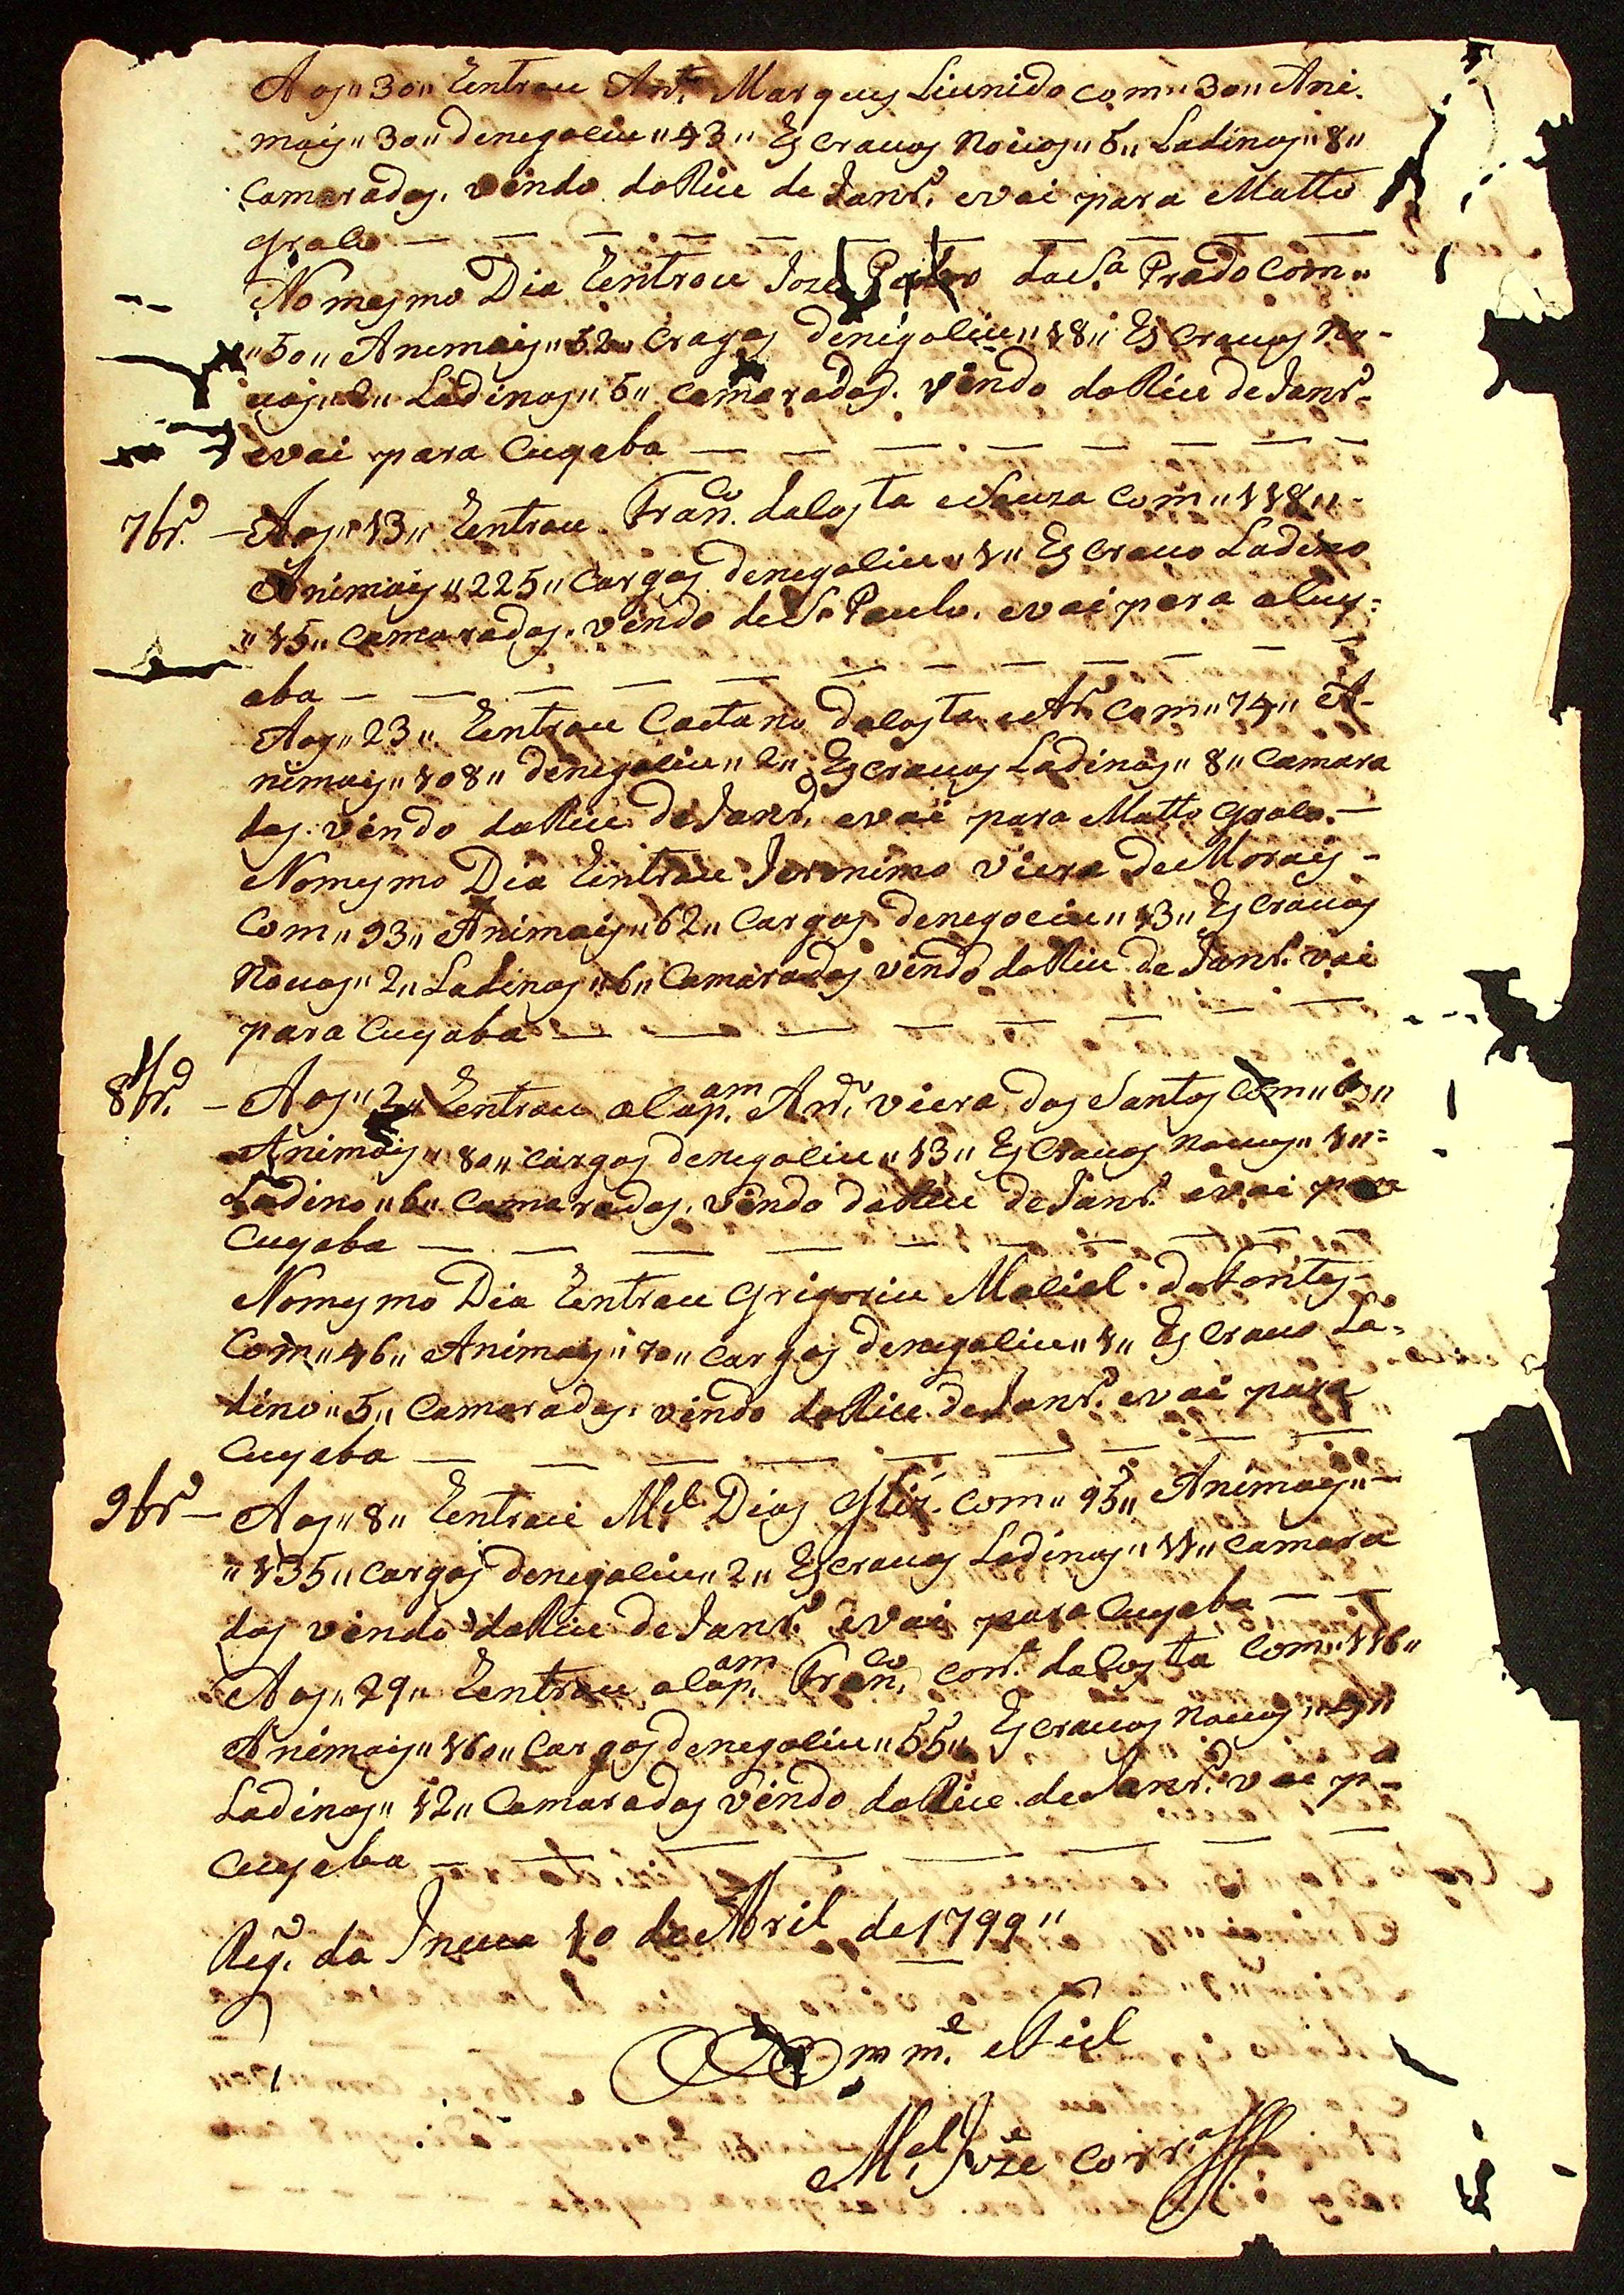 Aos " 30 " Entrou Ant.º Marques Liunido com " 30 " Ani-
mais " 30 " de negoliu " 43 " Escrauos Nouos " 5 " Ladinos " 8 "
Camaradas. vindo do Riu de Janr.º e vai para Matto
Grolo
No mesmo Dia Entrou Joze da S.ª Prado Com "
" 50 " Animais " 52 " Cragas de nigoliu " 18 " Escrauos No-
uos " 2 " Ladinos " 5 " camaradas. vindo do Riu de Janr.º
e vai para Cuyaba
7br.º - Aos " 13 " Entrou Fran.co da Costa e Souza Com " 118 "
Animais " 225 " Cargas de negoliu " 1 " Escrauo Ladino
" 15 " Camaradas. vindo de S. Paulo. e vai para a Cuy-
aba
Aos " 23 " Entrou Caetano da Costa e Ar.º Com " 74 " A-
nimais " 108 " de negoliu " 2 " Escrauos Ladinos " 8 " Camara
das. vindo do Riu de Janr.º e vai para Matto Grolo.
No mesmo Dia Entrou Jeronimo Viera de Morais -
Com " 93 " Animais " 62 " Cargas de negociu " 13 " Escrauos
Nouos " 2 " Ladinos " 6 " Camaradas vindo do Riu de Janr.º vai
para Cuyaba
8br.º - Aos " 2 " Entrou o Cap.am An.to viera dos Santos Com " 63 "
Animais " 80 " cargas de negoliu " 13 " Escrauos Nouos " 1 "
Ladino " 6 " Camaradas. vindo do Riu de Janr.º e vai para
Cuyaba
No mesmo Dia Entrou Grigoriu Maliel da Fontes -
Com " 46 " Animais " 70 " cargas de negoliu " 1 " Escrauo La-
dino " 5 " Camaradas. vindo do Riu de Janr.º e vai para
Cuyaba
9br.º - Aos " 8 " Entrou M.el Dias Glīz. com " 95 " Animais " -
" 135 " cargas de negoliu " 2 " Escrauos Ladinos " 11 " Camara
das vindo do Riu de Janr.º e vai para Cuyaba
Aos " 29 " Entrou o Cap.am Fran.co Corr.ª da Costa Com " 116 "
Animais " 160 " Cargas de negoliu " 55 " Escrauos Nouos " 4 "
Ladinos " 12 " Camaradas vindo do Riu de Janr.º vai p.ª
Cuyaba
Reg.º da Insua 10 de Abril de 1799 "
Comm.e e Fiel
M.el Jozé Corr.ª